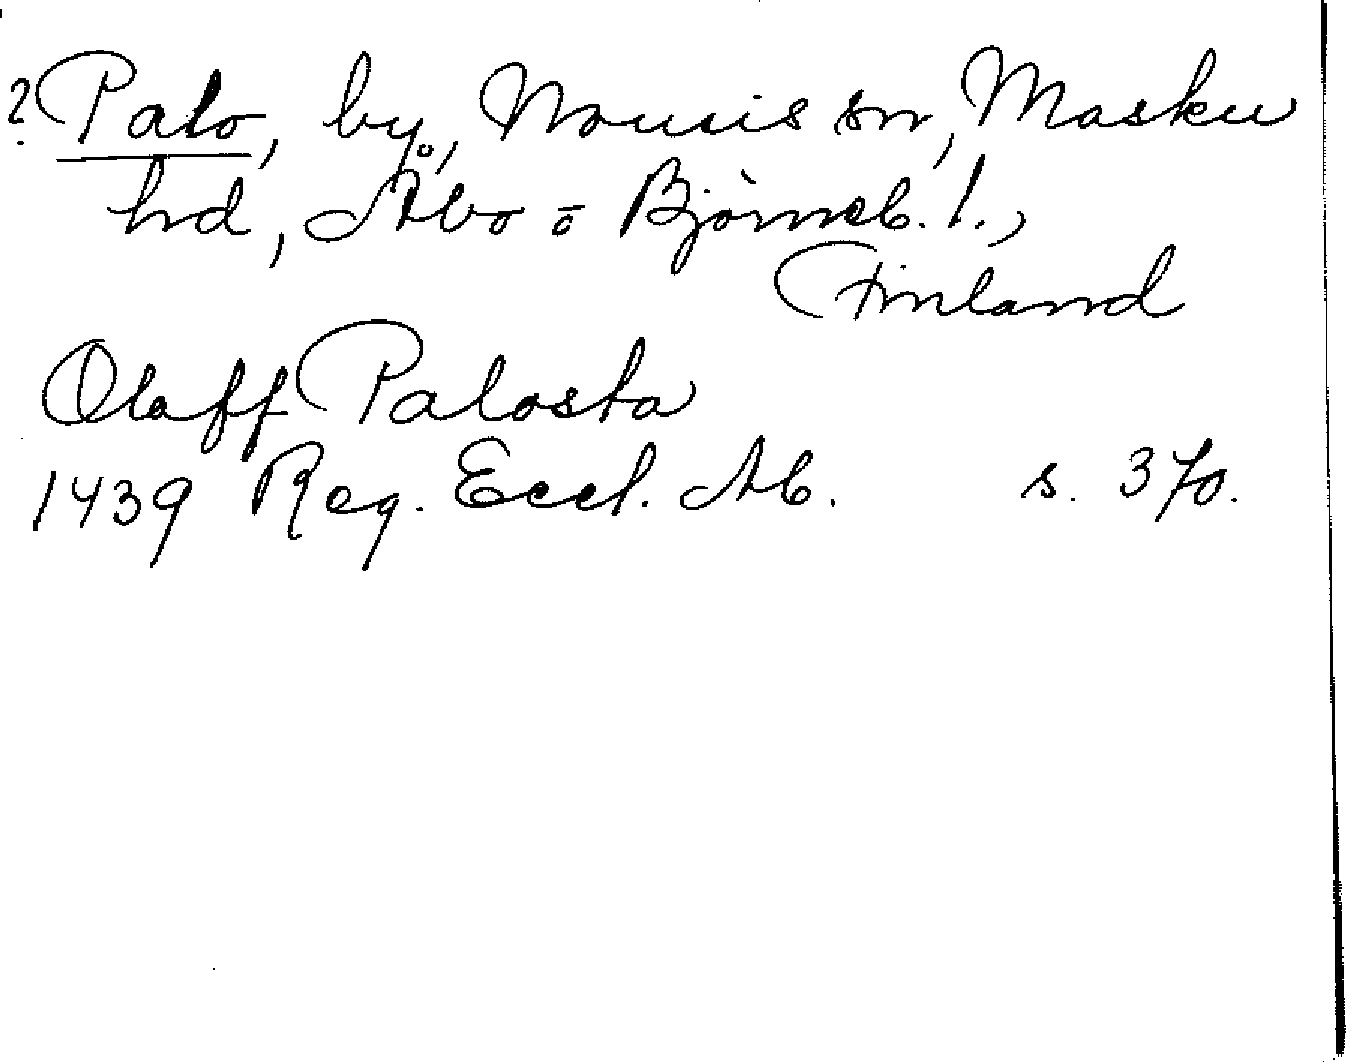 ? Palo, by, Nousis sn, Masku
hd, Åbo o Björneb. l.,
Finland
Olaff Palosta
1439 Reg. Eccl. Ab. s. 370.